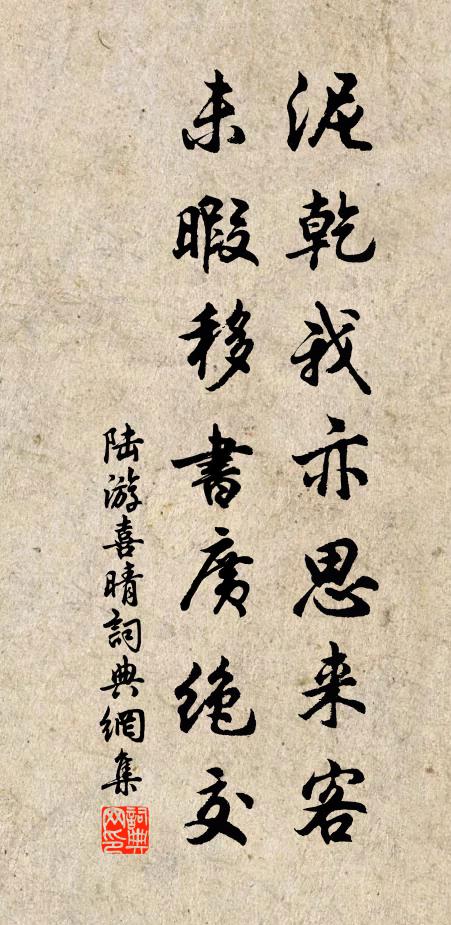 泥乾我亦思来客
未暇移書廣絶交
陆游喜晴詞典網集
詞典网印